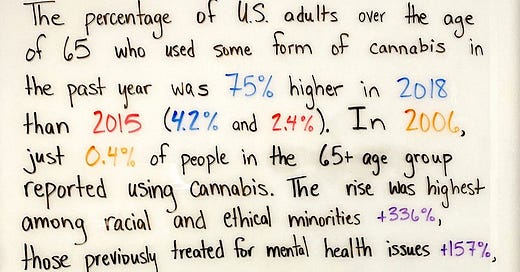 The percentage of U.S. adults over the age
of 65 who used some form of cannabis in
the past year was 75% higher in 2018
than 2015 (4.2% and 2.4%). In 2006,
just 0.4% of people in the 65+ age group
reported using cannabis. The rise was highest
among racial and ethical minorities +336%,
those previously treated for mental health issues +157%,